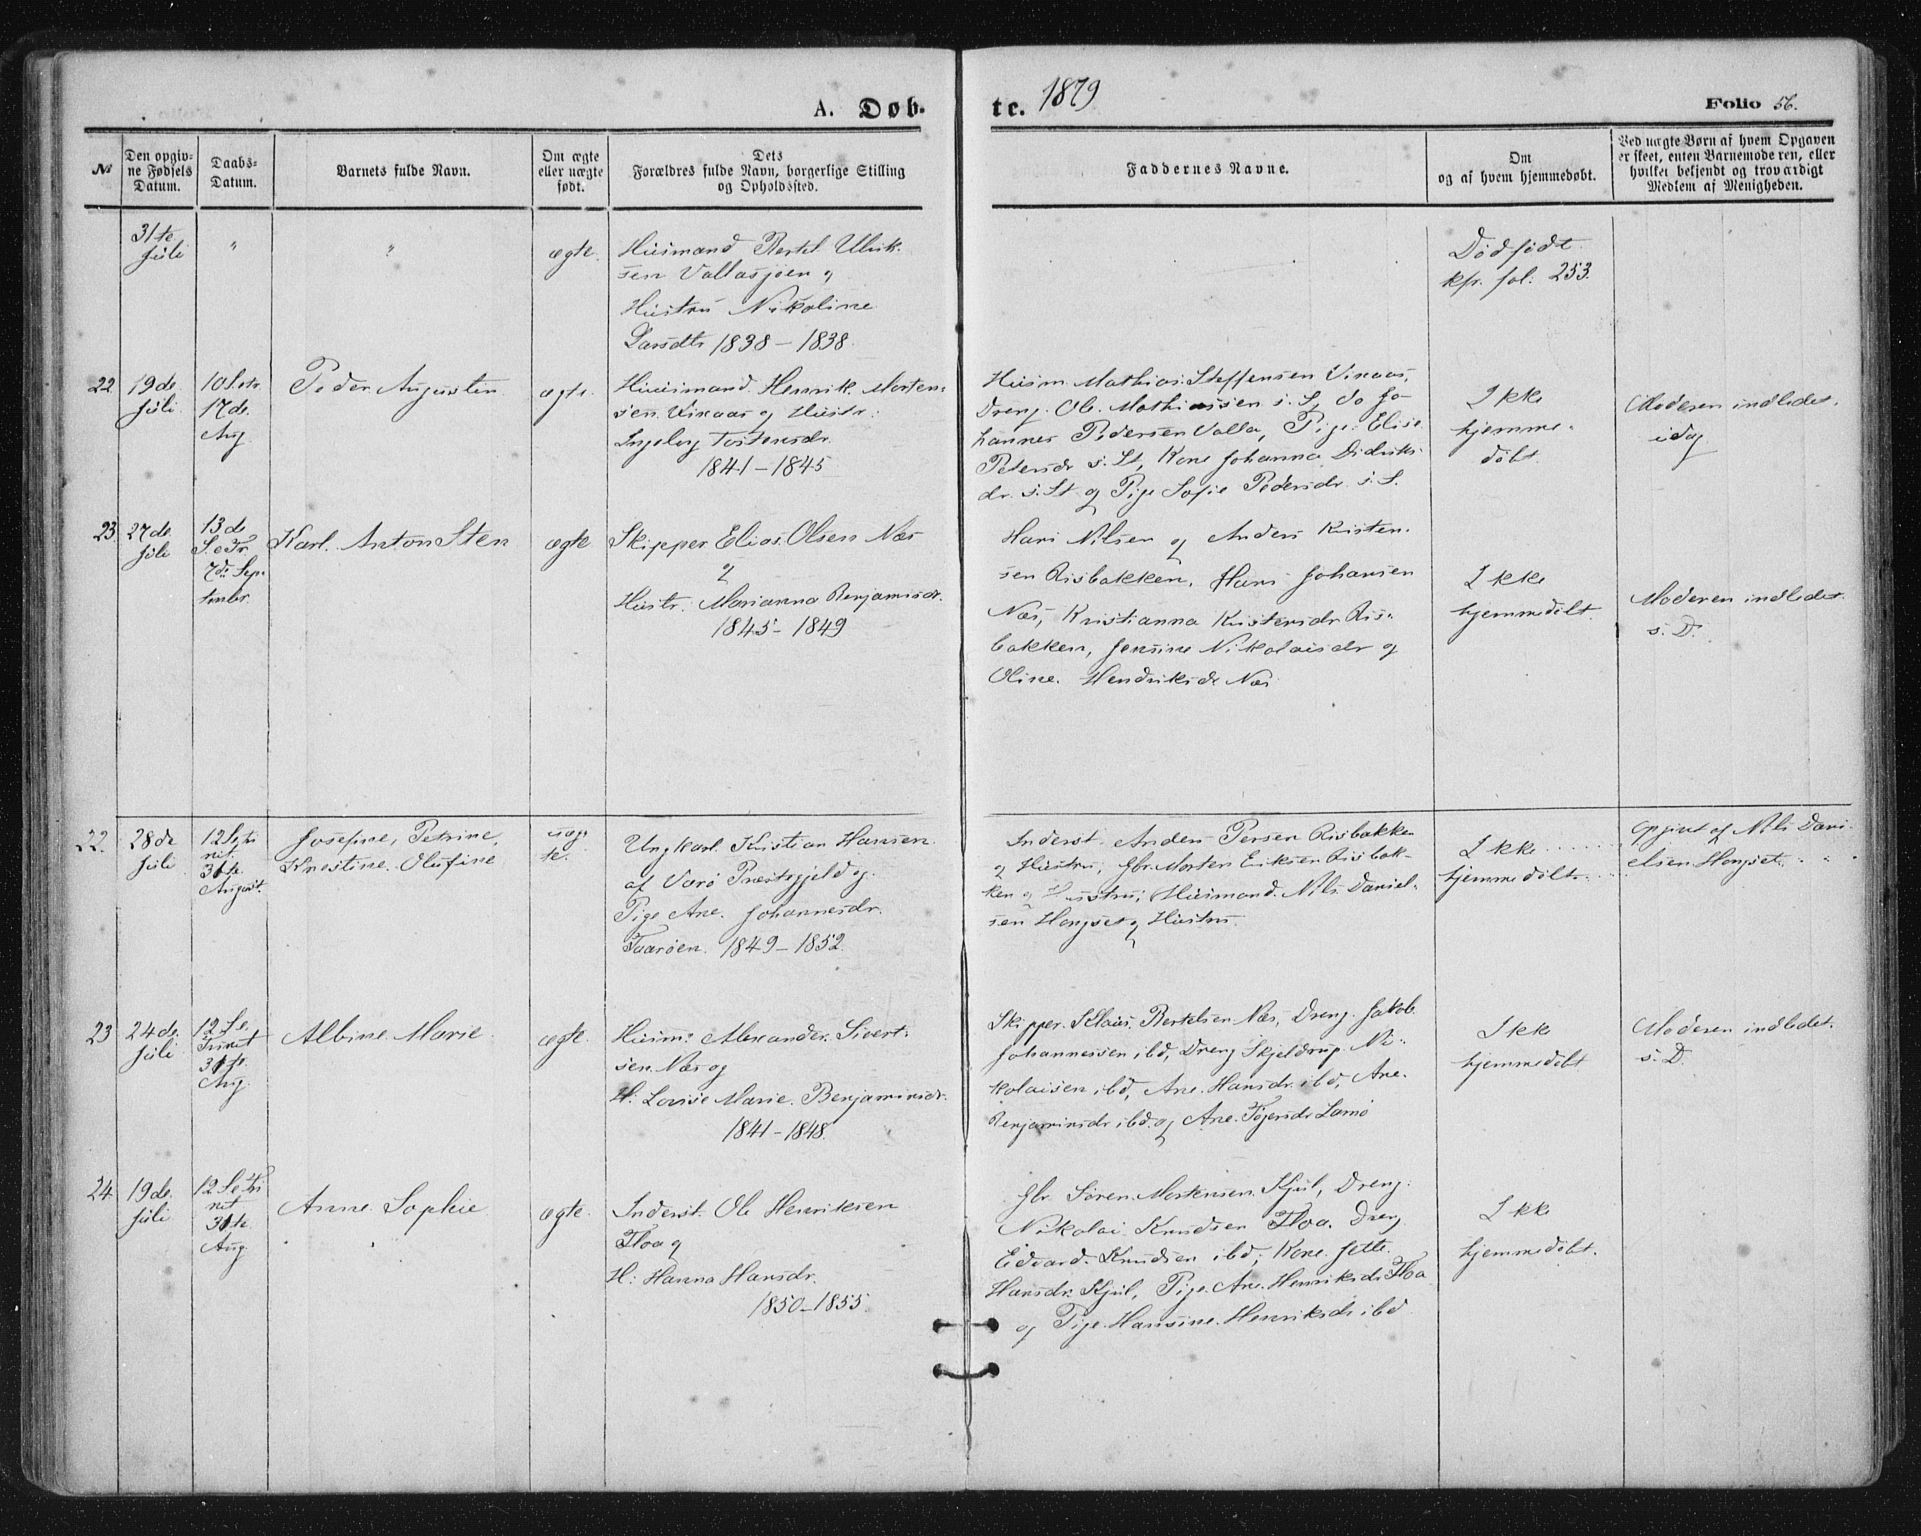 A. Døb-
te. 1879
Folio 56.
No
Den opgiv-
ne Fødsels
Datum.
Daabs-
Datum.
Barnets fulde Navn.
Om ægte
eller uægte
født.
Dets
Forældres fulde Navn, borgerlige Stilling
og Opholdssted.
Faddernes Navne.
Om
og af hvem hjemmedøbt.
Ved uægte Børn af hvem Opgaven
er skeet, enten Barnemoderen, eller
hvilket bekjendt og troværdigt
Medlem af Menigheden.
31te
Juli
"
"
ægte.
Husmand Bertel Ulrik-
sen Vallasjøen og
Hustru Nikoline
Larsdtr 1838 – 1838
Dødfødt
kfr. fol. 253.
22
19de
Juli
10 S. e. tr.
17de
Aug
Peder Augustin
ægte.
Huusmand Henrik Morten-
sen Vinaas og Hustr:
Ingeborg Tostensdr.
1841 – 1845
Husm. Mathias Steffensen Vinaas,
Dreng Ole Mathiassen s. S, do Jo-
hannes Pedersen Valla, Pige Elise
Petersdr s. St, Kone Johanna Didriks-
dr. s. St og Pige Sofie Pedersdr. s. S.
Ikke
hjemme-
døbt.
Moderen indledet
idag
23
27de
Juli
13de
S. e. Tr.
7de Sep-
tmbr.
Karl Anton Sten
ægte
Skipper Elias Olsen Næs
og
Hustr: Marianna Benjaminsdr.
1845 – 1849
Hans Nilsen og Anders Kristen-
sen Risbakken, Hans Johansen
Næs, Kristianna Kristensdr Ris-
bakken, Jensine Nikolaisdr og
Oline Hendriksdr Næs
Ikke
hjemmedøbt.
Moderen indledet
s. D.
22.
28de
Juli
12 S. e. tri
nit.
31te
August.
Josefine, Petrine,
Kristine. Olufine
uæg-
te.
Ungkarl Kristian Hansen
af Værø Præstegjeld og
Pige Ane Johannesdr.
Taarøen. 1849 – 1852.
Inderst Anders Persen Risbakken
og Hustru, Gbr. Morten Eriksen Risbak-
ken og Hustru, Husmand Nils Daniel-
sen Hongset og Hustru.
Ikke
hjemmedøbt
Opgivet af Nils Dani-
elsen Hongset
23
24de
Juli
12 S. e.
Trinit
31te
Aug.
Albine Marie
ægte.
Husm: Alexander Sivert-
sen Næs og
H: Lovise Marie Benjaminsdr.
1841 – 1848.
Skipper Bertelsen Næs, Dreng Jakob
Johannessen ibd, Dreng Skjeldrup Ni-
kolaisen ibd, Ane Hansdr ibd, Ane
Benjaminsdr ibd. og Ane
Ikke
hjemmedøbt
Moderen indledet.
s. D.
24
19de
Juli
12 S. e. Tri
nit
31te
Aug.
Anne Sophie
ægte.
Inderst Ole Henriksen
Floa og
H: Hanna Hansdr.
1850 – 1855.
Gbr Søren Mortensen Kjul, Dreng
Nikolai Knudsen Floa. Dreng
Edvard Knudsen ibd, Kone Jette
Hansdr. Kjul, Pige Ane Henriksdr Floa
og Pige Hansine Henriksdr ibd
Ikke
hjemmedøbt.